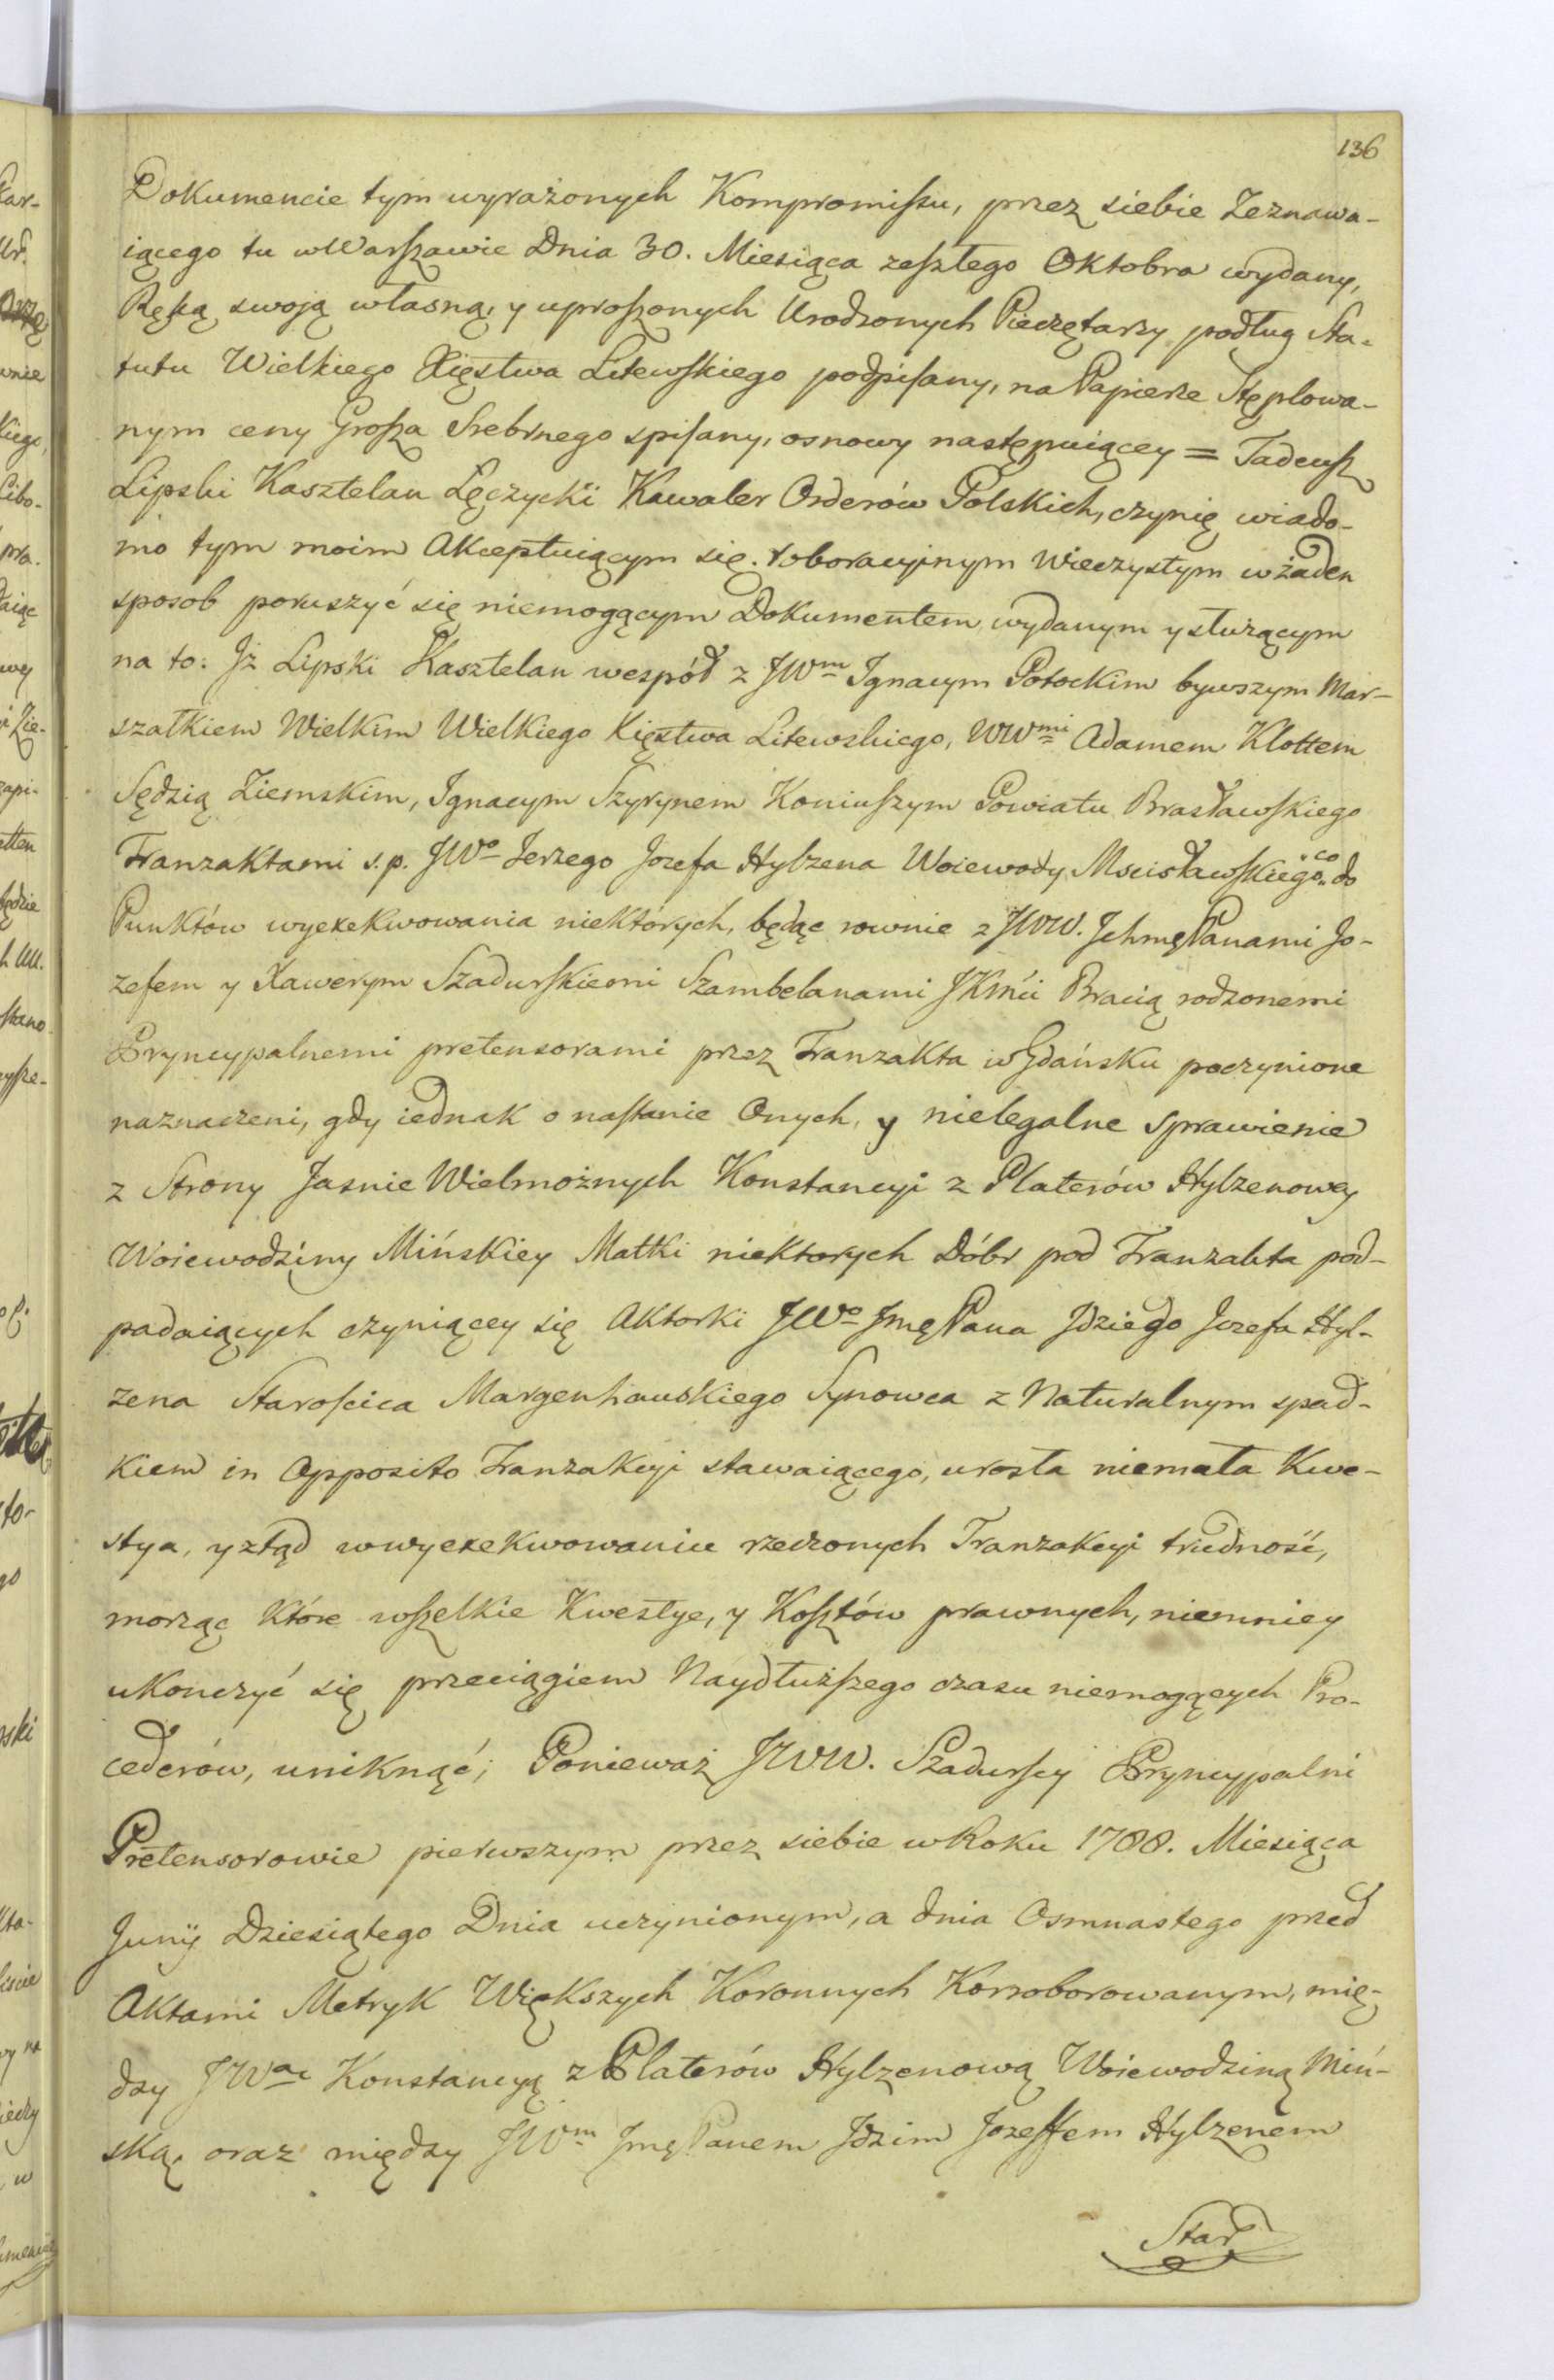 136
Dokumencie tym wyrażonych Kompromißu, przez siebie Zeznawa-
iącego tu w Warszawie Dnia 30. Miesiąca zeszłego Oktobra wydany,
Ręką swoją własną, y uproszonych Urodzonych Pieczętarzy podług Sta-
tutu Wielkiego Xięstwa Litewskiego podpisany, na Papierze Stęplowa-
nym ceny Grosza Srebrnego spisany, osnowy następuiącey = Tadeusz
Lipski Kasztelan Łęczycki Kawaler Orderów Polskich, czynię wiado-
mo tym moim Akceptuiącym się roboracyjnym Wieczystym w żaden
sposob poruszyć się niemogącym Dokumentem wydanym y służącym
na to: Jż Lipski Kasztelan wespół z JWm Ignacym Potockim bywszym Mar-
szałkiem Wielkim Wielkiego Xięstwa Litewskiego, WWmi Adamem Klottem
Sędzią Ziemskim, Ignacym Szyrynem Koniuszym Powiatu Brasławskiego
Tranzaktami s.p. JWo Jerzego Jozefa Hylzena Woiewody Mscisławskiego co do
Punktów wyexekwowania niektórych, będąc rownie z JWW. Jchmę Panami Jo-
zefem y Xawerym Szadurskiemi Szambelanami JKMci Bracią rodzonemi
Pryncypalnemi pretensorami przez Tranzakta w Gdańsku poczynione
naznaczeni, gdy iednak o nastanie Onych, y nielegalne sprawienie
z Strony Jasnie Wielmożnych Konstancyi z Platerów Hylzenowey
Woiewodziny Mińskiey Matki niektorych Dóbr pod Tranzakta pod-
padaiących czyniącey się Aktorki JWo Jmę Pana Jdziego Jozefa Hyl-
zena Staroscica Margenhauskiego Synowca z Naturalnym spad-
kiem in Opposito Tranzakcyi stawaiącego, urosła niemała Kwe-
stya, y ztąd w wyexekwowaniu rzeczonych Tranzakcyi trudność,
morząc które wszelkie Kwestye, y Kosztów prawnych, niemniey
ukonczyć się przeciągiem Naydłuższego czasu niemogących Pro-
cederów, uniknąć; Ponieważ JWW. Szadurscy Pryncypalni
Pretensorowie pierwszym przez siebie w Roku 1788. Miesiąca
Junij Dziesiątego Dnia uczynionym, a dnia Osmnastego przed
Aktami Metryk Większych Koronnych Korroborowanym, mię-
dzy JWae Konstancyą z Platerów Hylzenową Woiewodziną Miń-
ską, oraz między JWm Jmę Panem Jdzim Jozeffem Hylzenem
Star